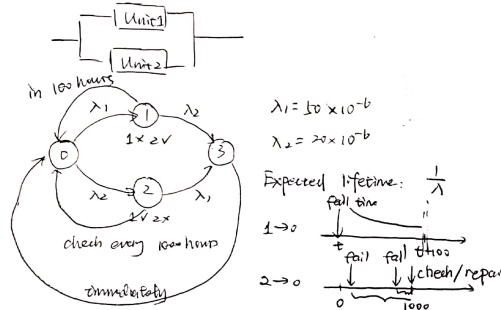 Unit1
Unit2
in 100 hours
λ1
1
λ2
1× 2√
0
3
λ2
2
λ1
1√ 2×
check every 1000 hours
immediately
λ1 = 50 × 10⁻⁶
λ2 = 20 × 10⁻⁶
Expected lifetime: 1/λ
fail time
1→0
t
t+100
fail fall check/repair
2→0
0
1000